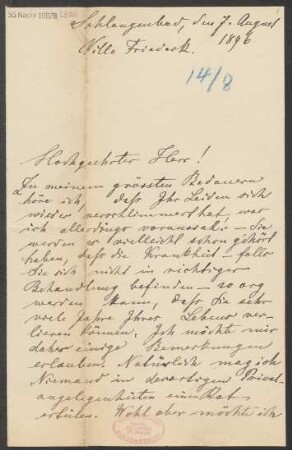 Schlangenbad, den 7. August
Villa Friedeck. 1896
14/8
Hochgeehrter Herr!
Zu meinem grössten Bedauern
höre ich, daß Ihr Leiden sich
wieder verschlimmert hat, was
ich allerdings voraussah. – Sie
werden es vielleicht schon gehört
haben, daß die Krankheit – falls
Sie sich nicht in richtiger
Behandlung befinden – so arg
werden kann, daß Sie sehr
viele Jahre Ihres Lebens ver-
lieren können. Ich möchte mir
daher einige Bemerkungen
erlauben. Natürlich mag ich
Niemand in derartigen Privat-
angelegenheiten einen Rat
erteilen. Wohl aber möchte ich